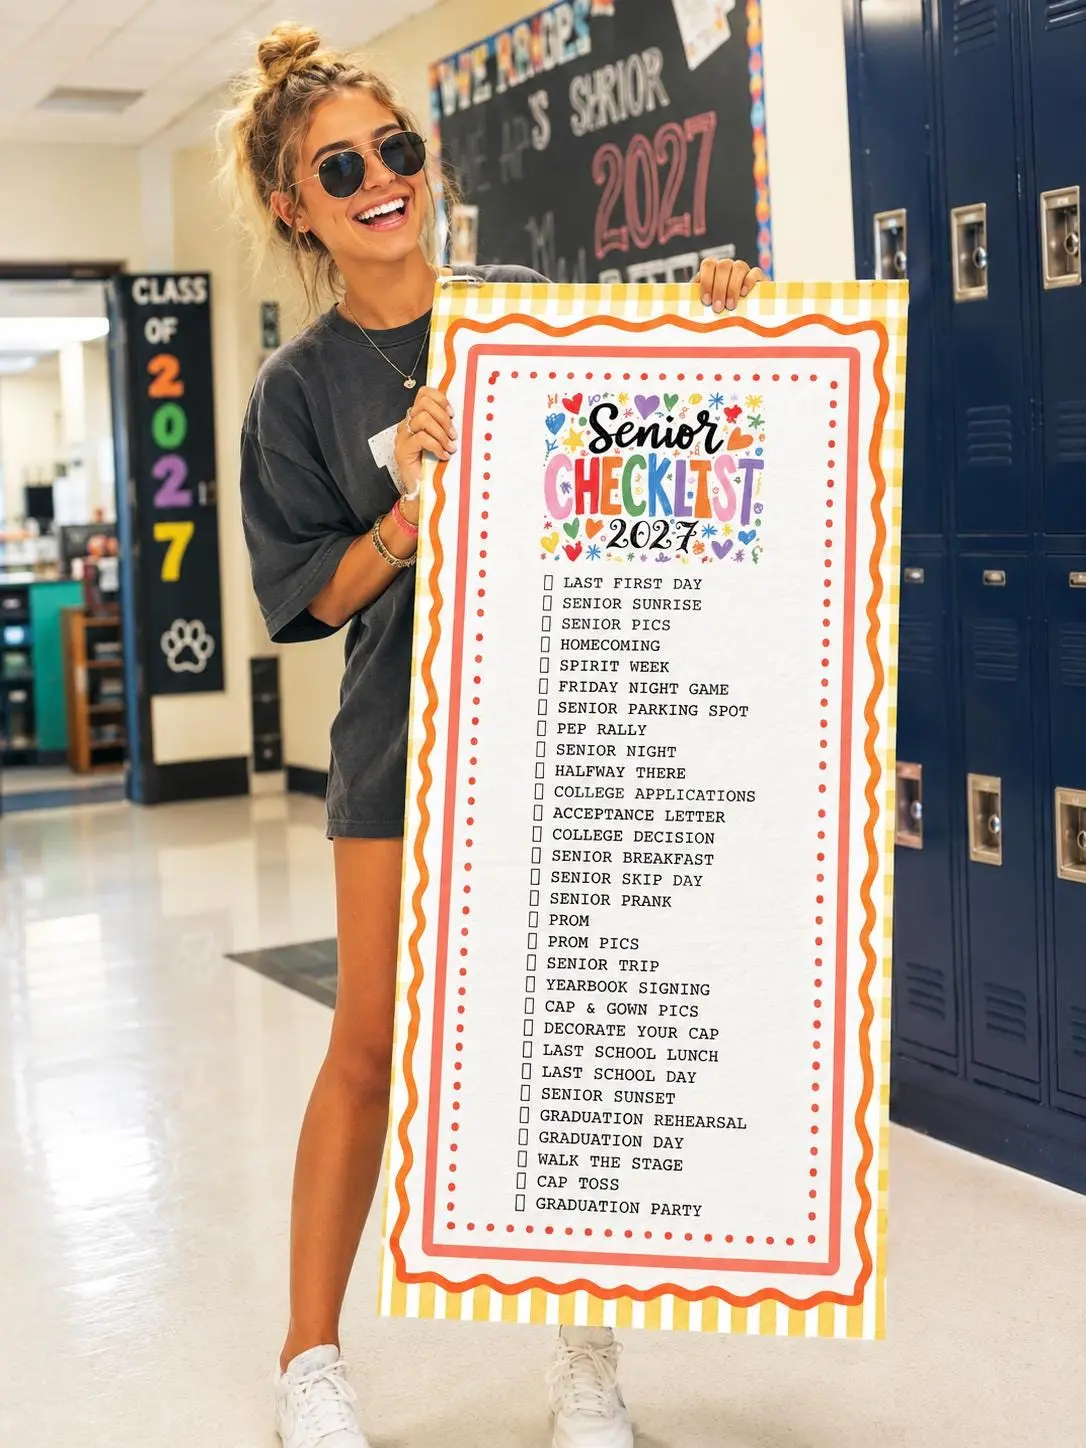 CLASS
OF
2
0
2
7
2027
Senior
CHECKLIST
2027
LAST FIRST DAY
SENIOR SUNRISE
SENIOR PICS
HOMECOMING
SPIRIT WEEK
FRIDAY NIGHT GAME
SENIOR PARKING SPOT
PEP RALLY
SENIOR NIGHT
HALFWAY THERE
COLLEGE APPLICATIONS
ACCEPTANCE LETTER
COLLEGE DECISION
SENIOR BREAKFAST
SENIOR SKIP DAY
SENIOR PRANK
PROM
PROM PICS
SENIOR TRIP
YEARBOOK SIGNING
CAP & GOWN PICS
DECORATE YOUR CAP
LAST SCHOOL LUNCH
LAST SCHOOL DAY
SENIOR SUNSET
GRADUATION REHEARSAL
GRADUATION DAY
WALK THE STAGE
CAP TOSS
GRADUATION PARTY